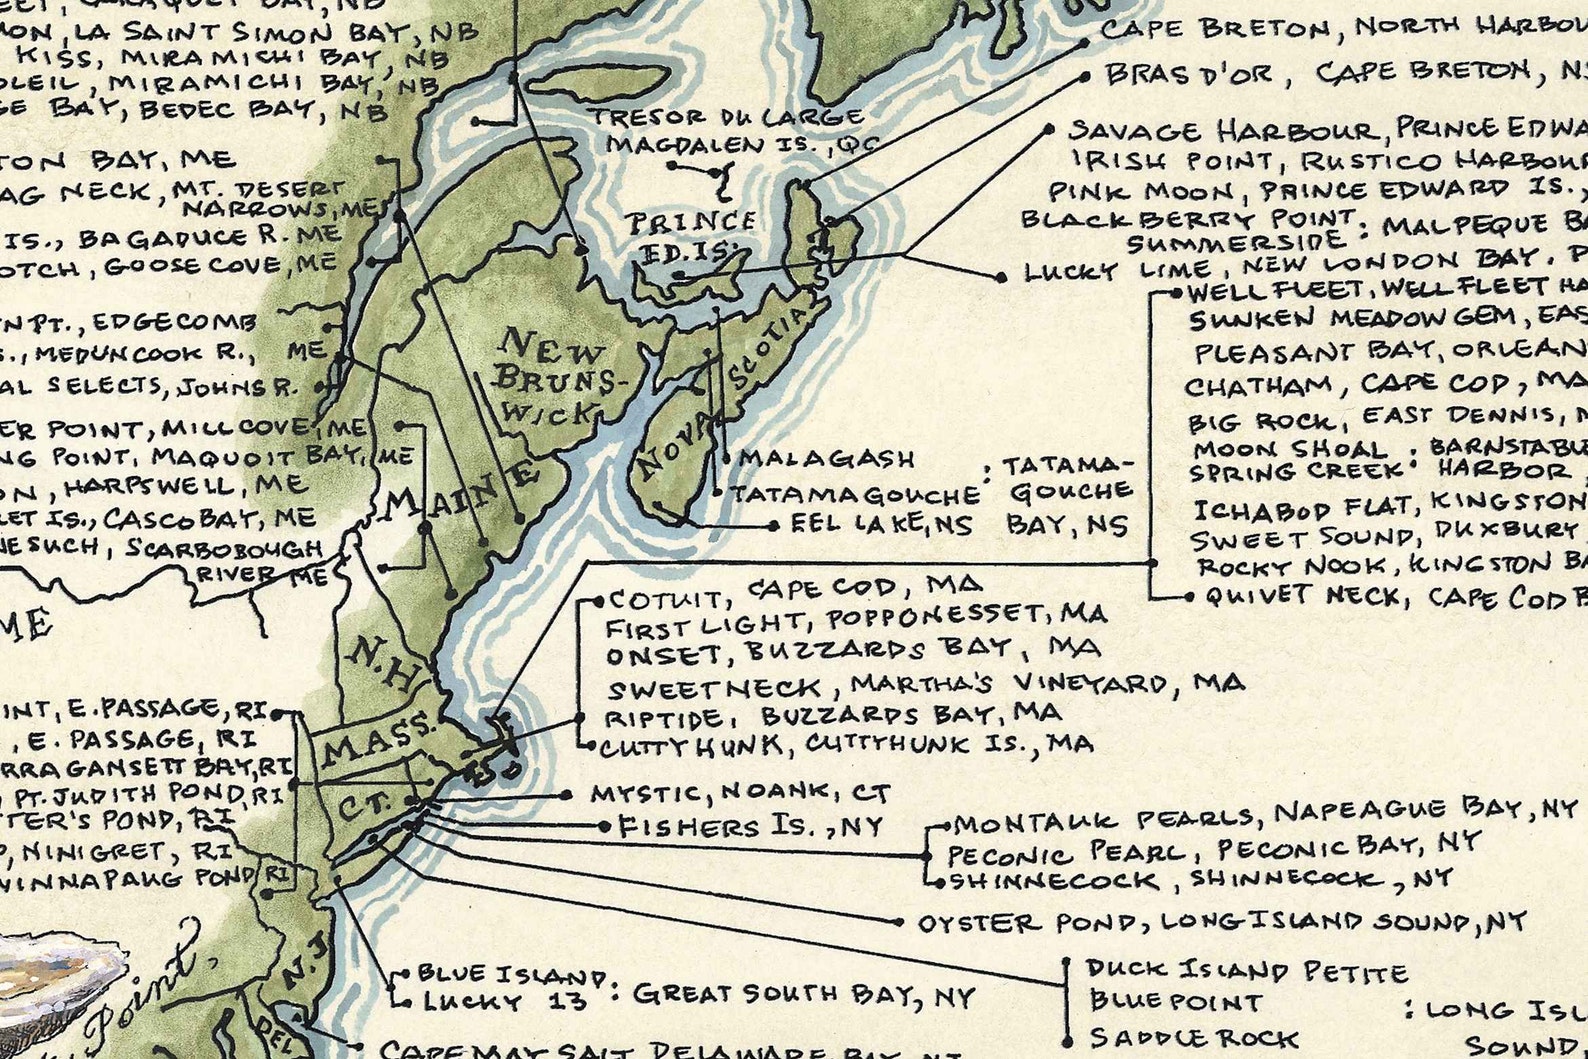 BAY, NB
LA SAINT SIMON BAY, NB
KISS, MIRAMICHI BAY, NB
MIRAMICHI BAY, NB
BAY, BEDEC BAY, NB
BAY, ME
NECK, MT. DESERT
NARROWS, ME
IS., BAGADUCE R. ME
GOOSE COVE, ME
PT., EDGECOMB
MEDUNCOOK R., ME
SELECTS, JOHNS R.
POINT, MILL COVE, ME
POINT, MAQUOIT BAY, ME
HARPSWELL, ME
IS., CASCO BAY, ME
SCARBOBOUGH
RIVER ME
ME
E. PASSAGE, RI
, E. PASSAGE, RI
BAY, RI
PT. JUDITH POND, RI
POND, RI
NINIGRET, RI
POND RI
Point,
TRESOR DU LARGE
MAGDALEN IS., QC
PRINCE
ED. IS.
NEW
BRUNS-
WICK
NOVA SCOTIA
MAINE
N.H
MASS.
CT.
N.J
DEL
CAPE BRETON, NORTH
BRAS D'OR, CAPE BRETON,
SAVAGE HARBOUR, PRINCE
IRISH POINT, RUSTICO
PINK MOON, PRINCE EDWARD IS.,
BLACKBERRY POINT
SUMMERSIDE : MALPEQUE
LUCKY LIME, NEW LONDON BAY.
WELLFLEET, WELLFLEET
SUNKEN MEADOW GEM,
PLEASANT BAY,
CHATHAM, CAPE COD, MA
BIG ROCK, EAST DENNIS,
MOON SHOAL
SPRING CREEK : HARBOR
ICHABOD FLAT, KINGSTON
SWEET SOUND, DUXBURY
ROCKY NOOK, KINGSTON
QUIVET NECK, CAPE COD
MALAGASH
TATAMAGOUCHE : TATAMA-
GOUCHE
EEL LAKE, NS BAY, NS
COTUIT, CAPE COD, MA
FIRST LIGHT, POPPONESSET, MA
ONSET, BUZZARDS BAY, MA
SWEET NECK, MARTHA'S VINEYARD, MA
RIPTIDE, BUZZARDS BAY, MA
CUTTYHUNK, CUTTYHUNK IS., MA
MYSTIC, NOANK, CT
FISHERS IS., NY
MONTAUK PEARLS, NAPEAGUE BAY, NY
PECONIC PEARL, PECONIC BAY, NY
SHINNECOCK, SHINNECOCK, NY
OYSTER POND, LONG ISLAND SOUND, NY
BLUE ISLAND
LUCKY 13 : GREAT SOUTH BAY, NY
DUCK ISLAND PETITE
BLUEPOINT : LONG
SADDLE ROCK SOUND,
CAPE MAY SALT DELAWARE BAY, NJ